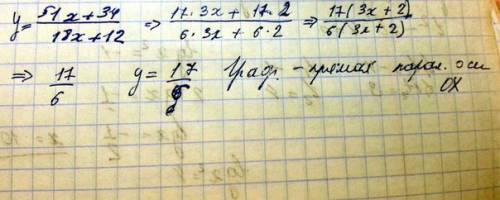 y = (51x + 34)/(18x + 12) ⇒ (17·3x + 17·2)/(6·3x + 6·2) ⇒ 17(3x + 2)/6(3x + 2)
⇒ 17/6 y = 17/6 Граф. - прямая парал. оси
OX